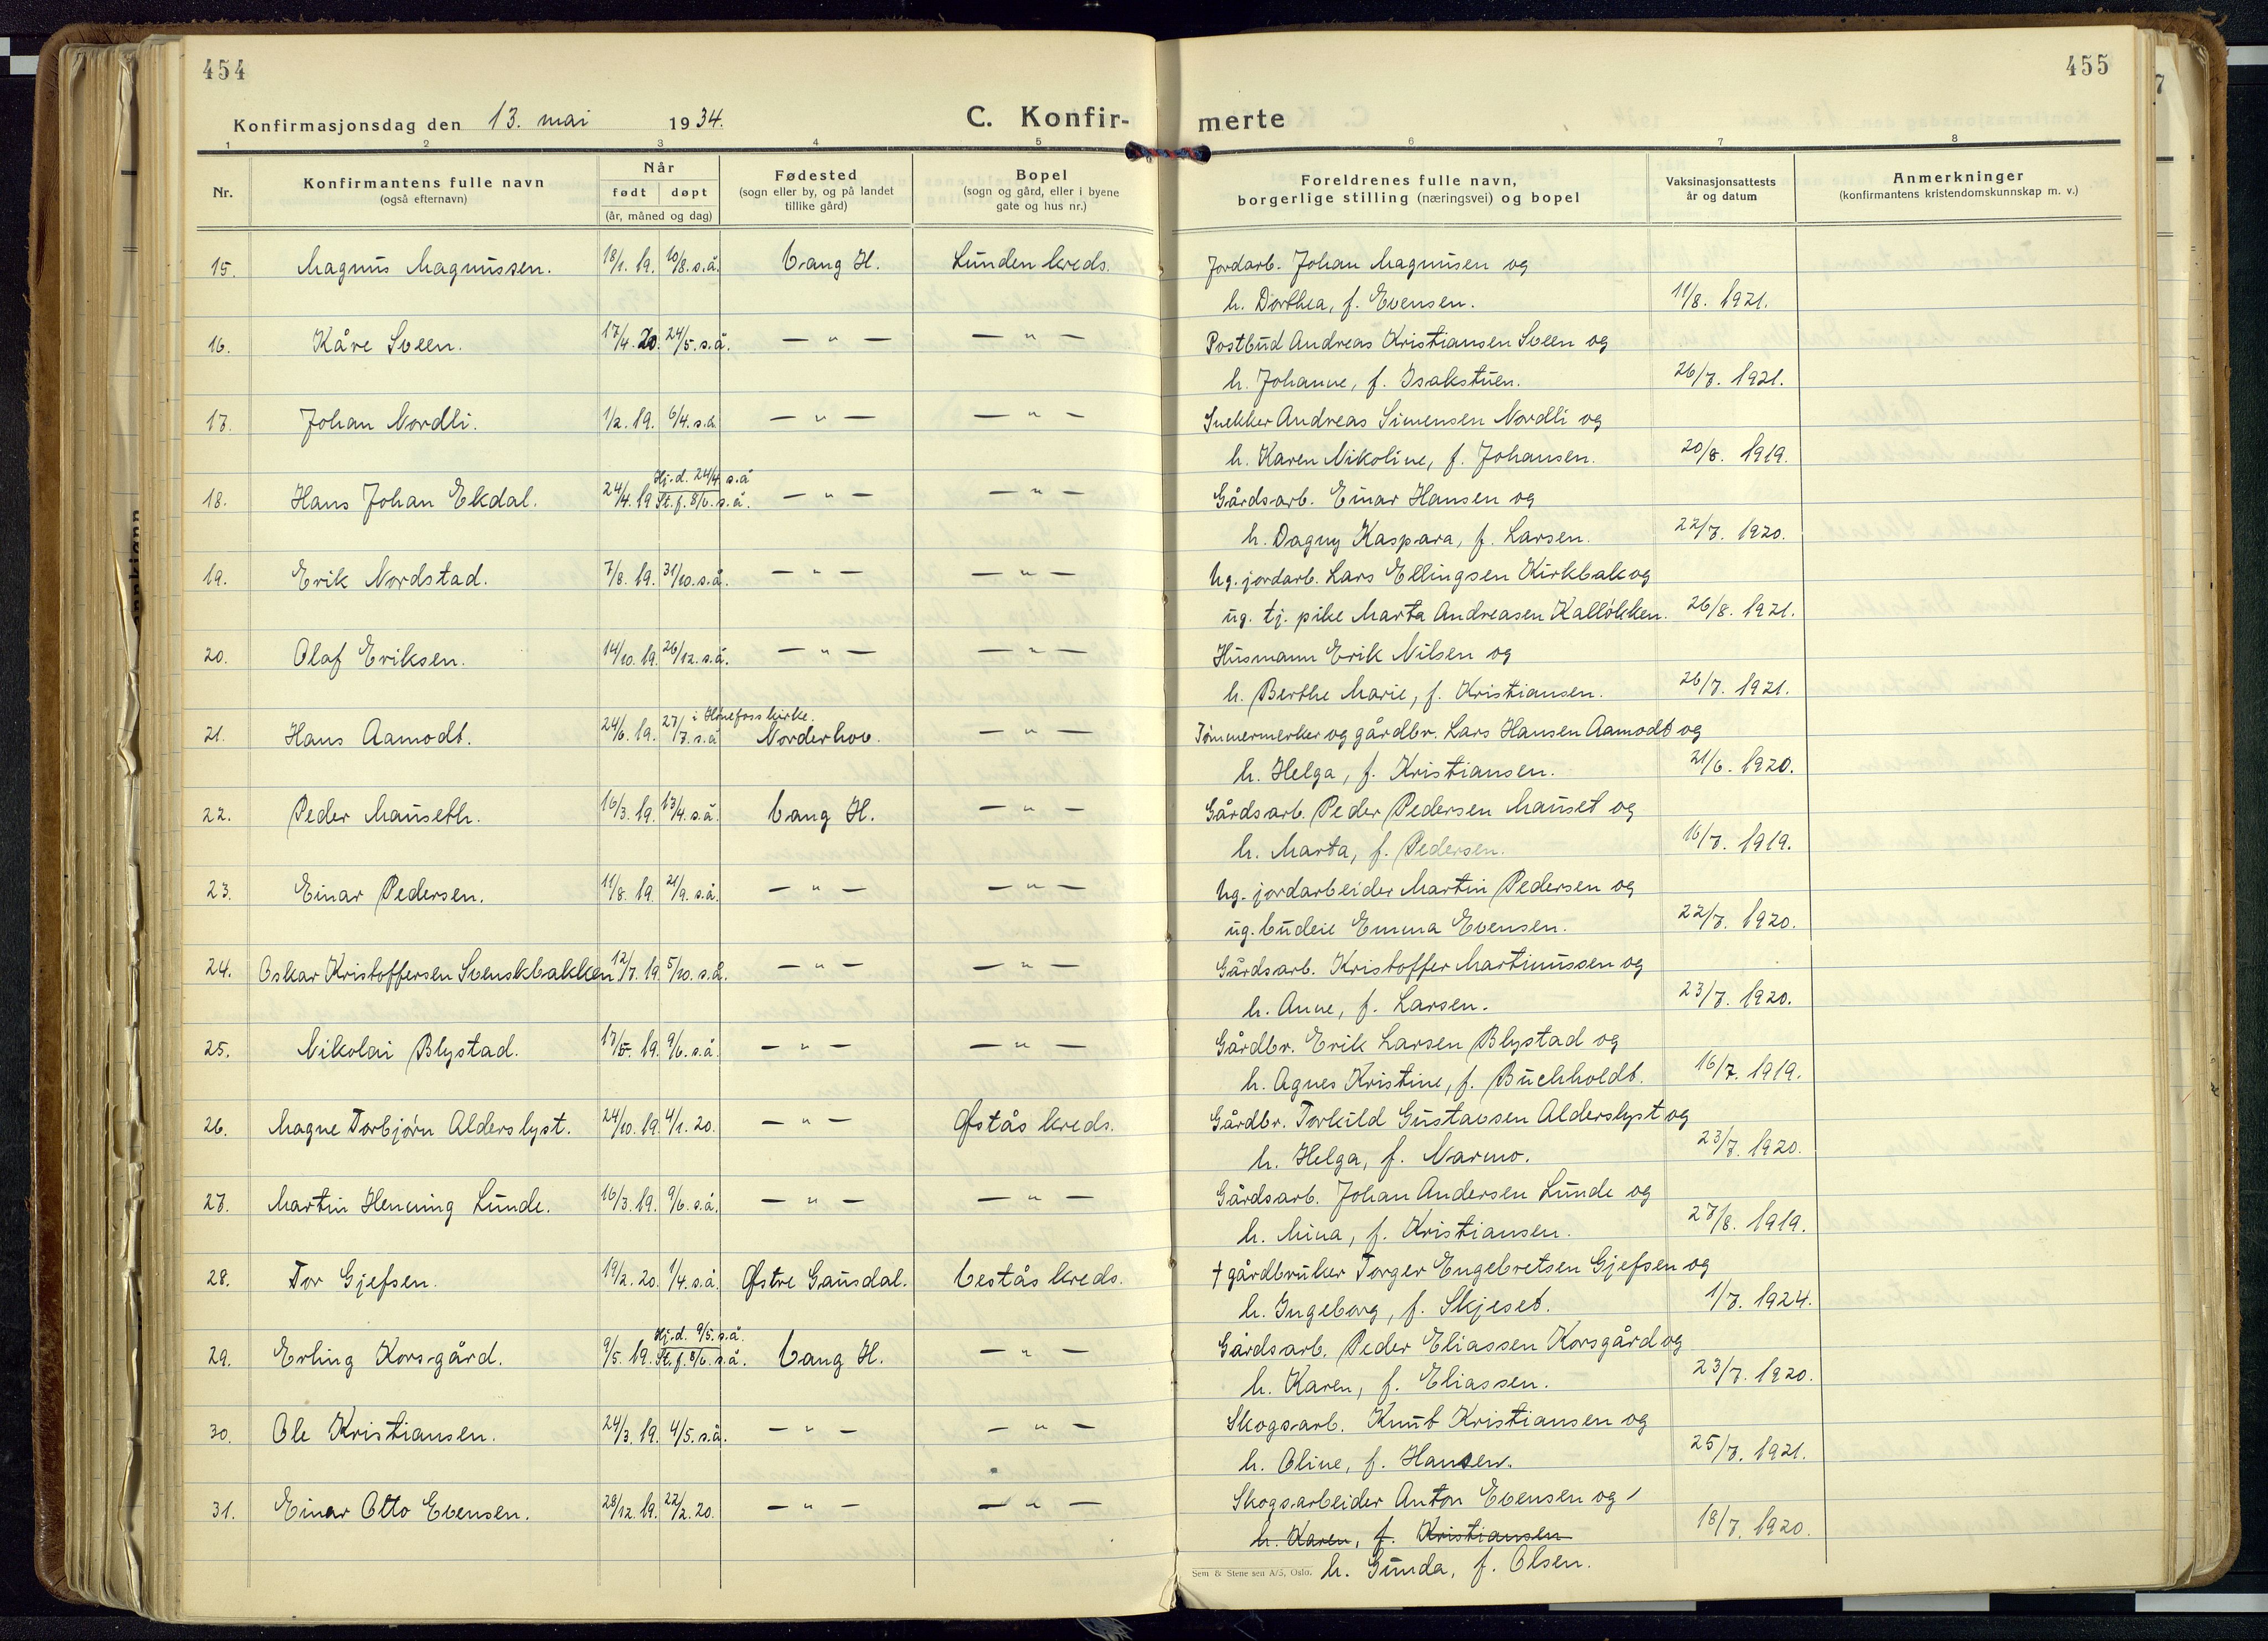 454
455
Konfirmasjonsdag den 13. mai 1934.
C. Konfir-
merte
1 2 3 4 5 6 7 8
Nr.
Konfirmantens fulle navn
(også efternavn)
Når
født døpt
(år, måned og dag)
Fødested
(sogn eller by, og på landet
tillike gård)
Bopel
(sogn og gård, eller i byene
gate og hus nr.)
Foreldrenes fulle navn,
borgerlige stilling (næringsvei) og bopel
Vaksinasjonsattests
år og datum
Anmerkninger
(konfirmantens kristendomskunnskap m. v.)
15. Magnus Magnussen. 18/1. 19. 10/8. s.å. Vang H. Lunden kreds. Jordarb. Johan Magnusen og
h. Dorthea, f. Evensen. 11/8. 1921.
16. Kåre Sveen. 17/4. 20. 24/5. s.å. — " — — " — Postbud Andreas Kristiansen Sveen og
h. Johanne, f. Isakstuen. 26/7. 1921.
17. Johan Nordli. 1/2. 19. 6/4. s.å. — " — — " — Snekker Andreas Simensen Nordli og
h. Karen Nikoline, f. Johansen. 20/8. 1919.
Hj.d. 24/4 s.å
18. Hans Johan Ekdal. 24/4. 19 St. f. 8/6. s.å. — " — — " — Gårdsarb. Einar Hansen og
h. Dagny Kaspara, f. Larsen. 22/7. 1920.
19. Erik Nordstad. 7/8. 19. 31/10. s.å. — " — — " — Ug. jordarb. Lars Ellingsen Kirkbak og
ug. tj. pike Marta Andreasen Kalløkken. 26/8. 1921.
20. Olaf Eriksen. 14/10. 19. 26/12. s.å. — " — — " — Husmann Erik Nilsen og
h. Berthe Marie, f. Kristiansen. 26/7. 1921.
i Hønefoss kirke.
21. Hans Aamodt. 24/6. 19. 27/7. s.å Norderhov. — " — Tømmermerker og gårdbr. Lars Hansen Aamodt og
h. Helga, f. Kristiansen. 21/6. 1920.
22. Peder Mauseth. 16/3. 19. 13/4. s.å. Vang H. — " — Gårdsarb. Peder Pedersen Mauset og
h. Marta, f. Pedersen. 16/7. 1919.
23. Einar Pedersen. 11/8. 19. 21/9. s.å. — " — — " — Ug. jordarbeider Martin Pedersen og
ug. budeie Emma Evensen. 22/7. 1920.
24. Oskar Kristoffersen Svenskbakken 12/7. 19. 5/10. s.å. — " — — " — Gårdsarb. Kristoffer Martinussen og
h. Anne, f. Larsen. 23/7. 1920.
25. Nikolai Blystad. 17/5. 19. 9/6. s.å. — " — — " — Gårdbr. Erik Larsen Blystad og
h. Agnes Kristine, f. Buchholdt. 16/7. 1919.
26. Magne Torbjørn Alderslyst. 24/10. 19. 4/1. 20. — " — Østås kreds. Gårdbr. Torkild Gustavsen Alderslyst og
h. Helga, f. Narmo. 23/7. 1920.
27. Martin Henning Lunde. 16/3. 19. 9/6. s.å. — " — — " — Gårdsarb. Johan Andersen Lunde og
h. Mina, f. Kristiansen. 27/8. 1919.
28. Tor Gjefsen. 19/2. 20. 1/4. s.å. Østre Gausdal. Vestås kreds. † gårdbruker Torger Engebretsen Gjefsen og
h. Ingeborg, f. Skjeset. 1/7. 1924.
Hj.d. 9/5. s.å.
29. Erling Korsgård. 9/5. 19. St. f. 8/6. s.å. Vang H. — " — Gårdsarb. Peder Eliassen Korsgård og
h. Karen, f. Eliassen. 23/7. 1920.
30. Ole Kristiansen. 24/3. 19. 4/5. s.å. — " — — " — Skogsarb. Knut Kristiansen og
h. Oline, f. Hansen. 25/7. 1921.
31. Einar Otto Evensen. 28/12. 19. 22/2. 20. — " — — " — Skogsarbeider Anton Evensen og
h. Karen, f. Kristiansen 18/7. 1920.
h. Gunda, f. Olsen.
Sem & Stenersen A/S, Oslo.